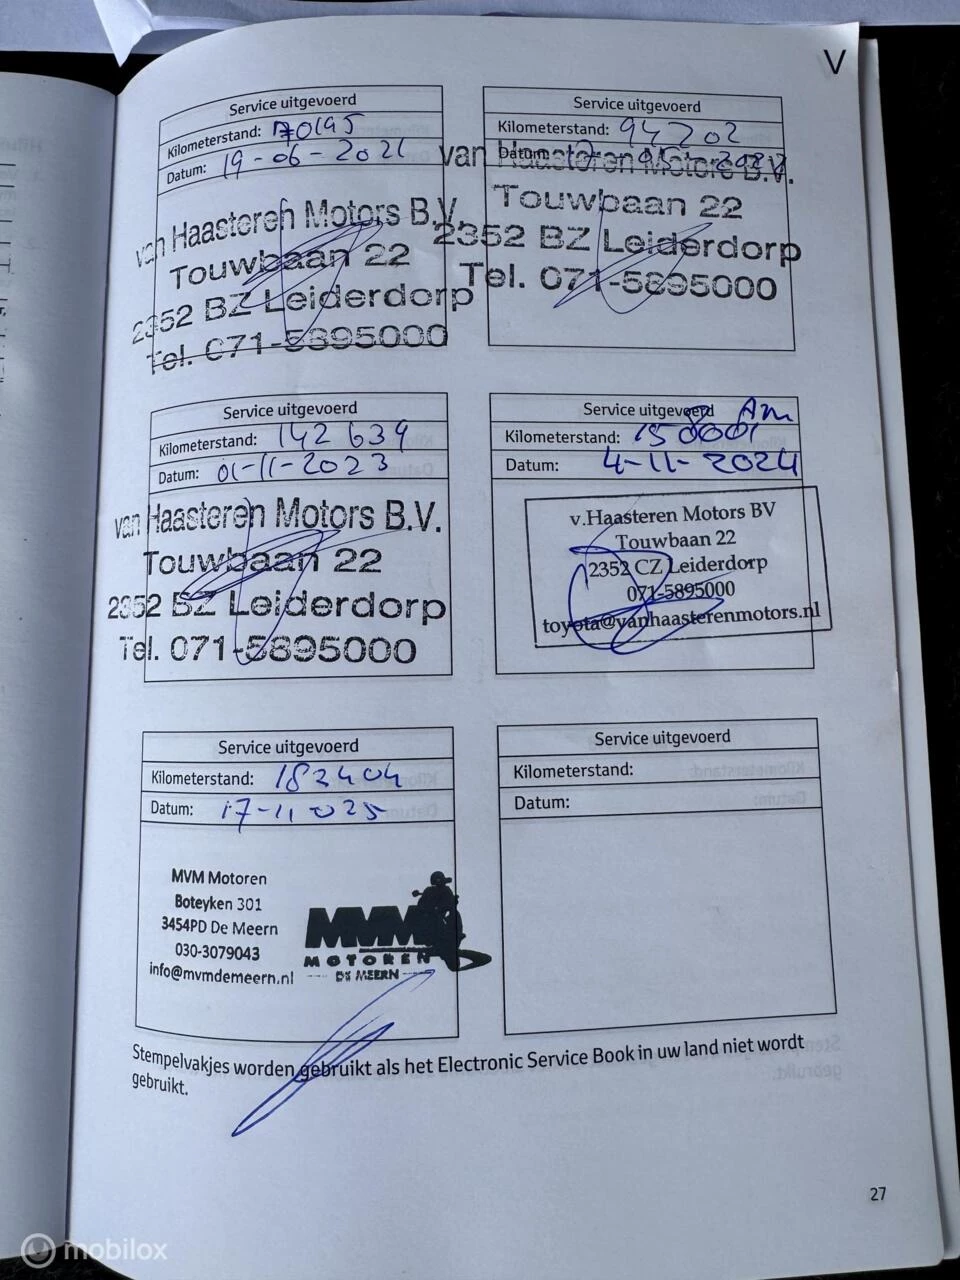 V
Service uitgevoerd
Kilometerstand: 70195
Datum: 19-06-2021
van Haasteren Motors B.V.
Touwbaan 22
2352 BZ Leiderdorp
Tel. 071-5895000
Service uitgevoerd
Kilometerstand: 94202
Datum:
van Haasteren Motors B.V.
Touwbaan 22
2352 BZ Leiderdorp
Tel. 071-5895000
Service uitgevoerd
Kilometerstand: 142639
Datum: 01-11-2023
van Haasteren Motors B.V.
Touwbaan 22
2352 BZ Leiderdorp
Tel. 071-5895000
Service uitgevoerd
Kilometerstand:
Datum: 4-11-2024
v.Haasteren Motors BV
Touwbaan 22
2352 CZ Leiderdorp
071-5895000
toyota@vanhaasterenmotors.nl
Service uitgevoerd
Kilometerstand: 182404
Datum: 17-11 2025
MVM Motoren
Boteyken 301
3454PD De Meern
030-3079043
info@mvmdemeern.nl
MVM
MOTOREN
DE MEERN
Service uitgevoerd
Kilometerstand:
Datum:
Stempelvakjes worden gebruikt als het Electronic Service Book in uw land niet wordt
gebruikt.
27
mobilox